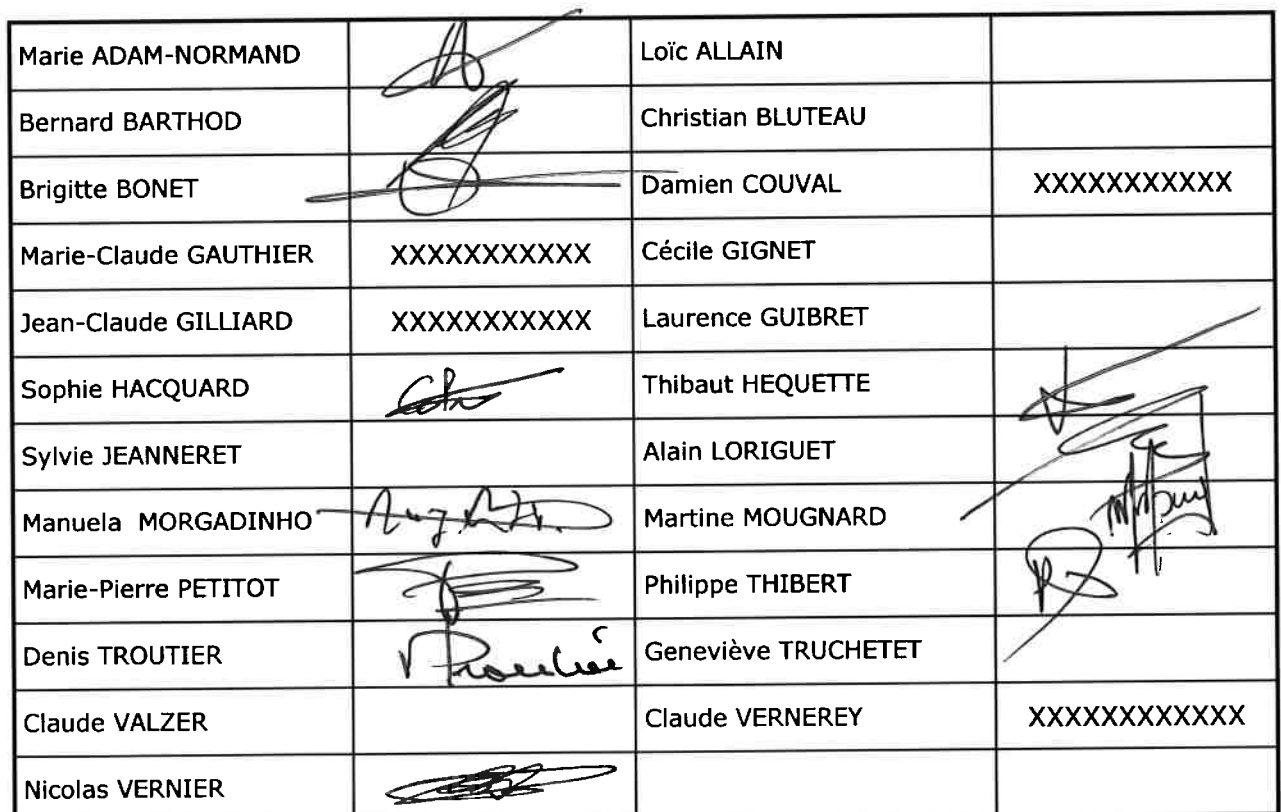 Marie ADAM-NORMAND Loïc ALLAIN
Bernard BARTHOD Christian BLUTEAU
Brigitte BONET Damien COUVAL XXXXXXXXXXX
Marie-Claude GAUTHIER XXXXXXXXXXX Cécile GIGNET
Jean-Claude GILLIARD XXXXXXXXXXX Laurence GUIBRET
Sophie HACQUARD Thibaut HEQUETTE
Sylvie JEANNERET Alain LORIGUET
Manuela MORGADINHO Martine MOUGNARD
Marie-Pierre PETITOT Philippe THIBERT
Denis TROUTIER Geneviève TRUCHETET
Claude VALZER Claude VERNEREY XXXXXXXXXXXX
Nicolas VERNIER